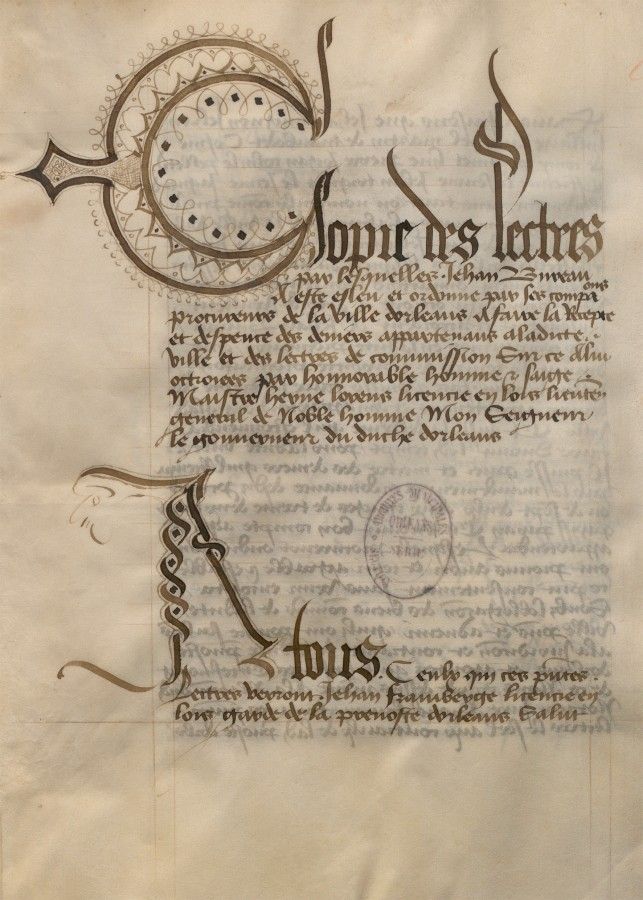 Copie des lectres
par lesquelles Jehan Bureau
A este esleu et ordonne par ses compaignons
procureurs de la ville dorleans A faire la Recepte
et despence des deniers appartenans a ladicte
ville et des lectres de commission Sur ce
octroiees par honnorable homme et saige
Maistre licencie en lois lieuten
general de Noble homme Mon Seigneur
le gouverneur du duche dorleans
A tous Ceulx qui ces pntes
Lectres verront Jehan licencie en
lois garde de la prevoste dorleans Salut
ORLEANS